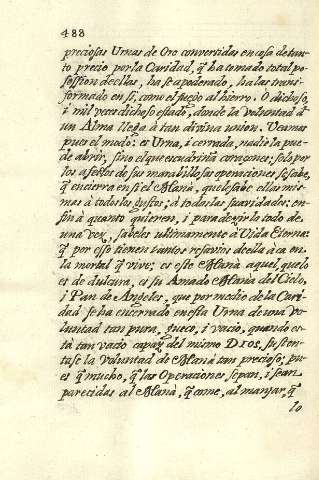 488
preciosas Urnas de Oro convertidas en casa de tan-
to precio por la Caridad, q̃ ha tomado total po-
session de ellas, ha se apoderado, ha las trans-
formado en si, como el fuego al hierro. O dichoso,
i mil veces dichoso estado, donde la voluntad de
un Alma llega à tan divina union. Veamos
pues el modo: es Urna, i cerrada, nadie la pue-
de abrir, sino el que escudriña corazones; solo por
los afectos de sus maravillosas operaciones se sabe,
q̃ encierra en si el Manà, que le sabe ellas mis-
mas à todos los gustos; à todas las suavidades; en-
fin à quanto quieren, i para dezirlo todo de
una vez, sabeles ultimamente à Vida Eterna:
q̃ por esso tienen tantos resavios de ella à ca
la mortal q̃ vive; es este Manà aquel, que lo
es de dulcura, es su Amado Manà del Cielo,
i Pan de Angeles, que por medio de la Cari-
dad se ha encerrado en esta Urna de una vo-
luntad tan pura, hueco, i vacio, quando es-
tà tan vacio capaz del mismo DIOS, susten-
tase la voluntad de Manà tan precioso; pu-
es q̃ mucho, q̃ las Operaciones sepan, i sean
parecidas al Manà, q̃ come, al manjar, q̃
lo